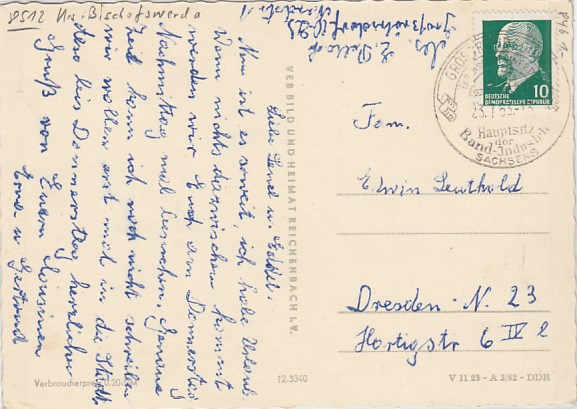 8512 Kr. Bischofswerda
Abs.
Großröhrsdorf
Liebe Liesel u.
Nun ist es soweit, ich habe Urlaub.
Wenn nichts dazwischen kommt
werden wir Euch am Donnerstag
Nachmittag mal besuchen, Genaue
Zeit kann ich noch nicht schreiben
wir wollen erst mal in die Stadt.
Also bis Donnerstag herzliche
Grüße von Euern Cousinen
Erna u. Gertraud
VEB BILD UND HEIMAT REICHENBACH I. V.
Verbraucherpreis 0,20 DM
12/3340
DEUTSCHE
DEMOKRATISCHE REPUBLIK
10
Hauptsitz
der
Band-Industrie
SACHSENS
Fam.
Edwin Leuthold
Dresden-N. 23
Hartigstr 6 IV l
V 11 29 - A 3/62 - DDR